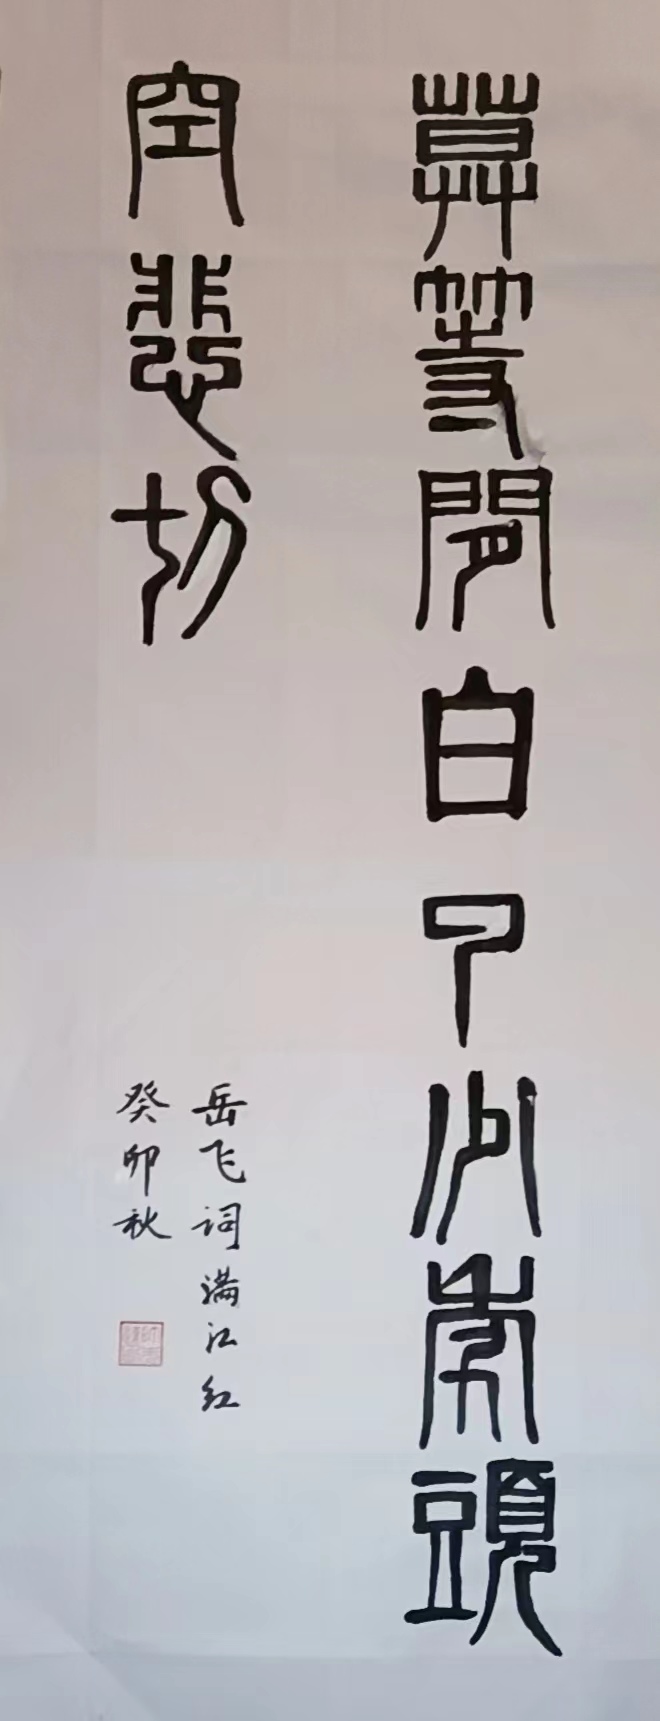 莫等閒白了少年頭
空悲切
岳飞词满江红
癸卯秋